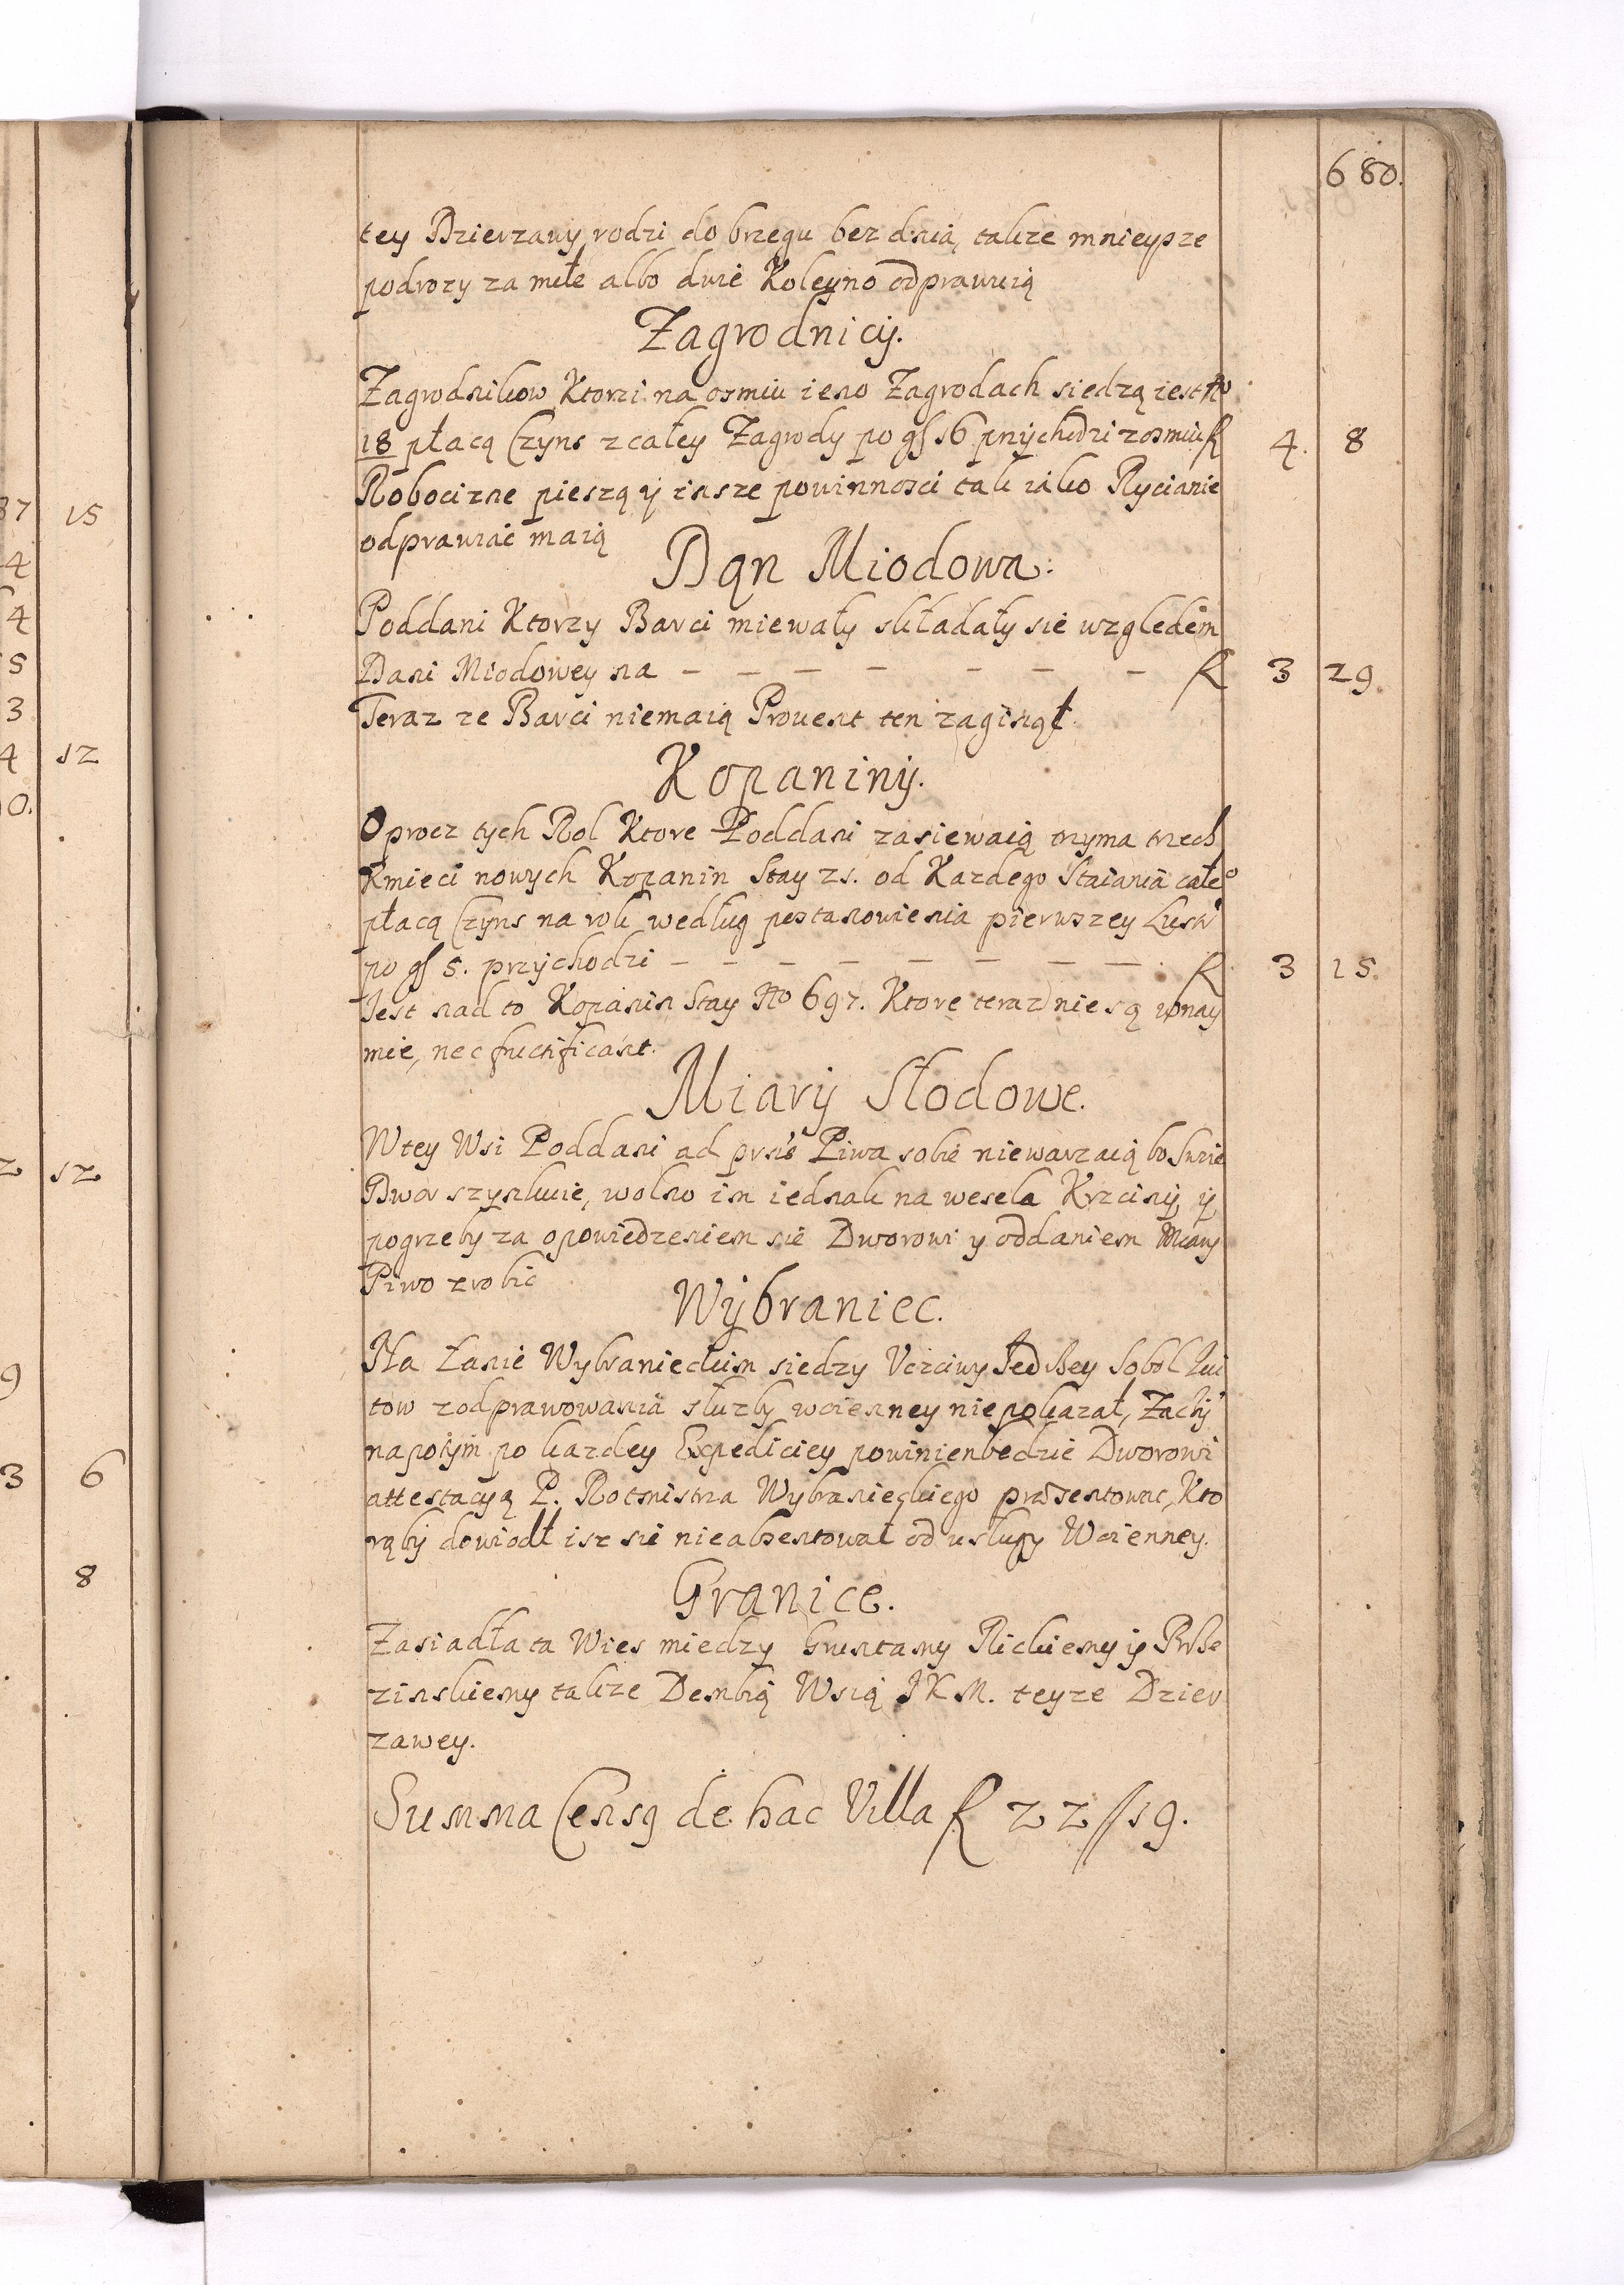 680.
tey Dzierzawy rodzi do brzegu bez dnia, takze mnieysze
podrozy za mile albo dwie Koleyno odprawuią
Zagrodnicy.
Zagrodnikow Ktorzi na osmiu ieno Zagrodach siedzą iest No
18 płacą Czyns z całey Zagrody po gs 16 przychodzi z osmiu f 4. 8
Robocizne pieszą y insze powinnosci tak iako Rycianie
odprawiać maią
Dań Miodowa:
Poddani Ktorzy Barci miewały składały sie względem
Dani Miodowey na – – – – – – – f 3 29.
Teraz ze Barci niemaią Prouent ten zaginął.
Kopaniny.
Oprocz tych Rol Ktore Poddani zasiewaią trzyma trzech
Kmieci nowych Kopanin Stay 21. od Kazdego Staiania całeo
płacą Czyns na rok według postanowienia pierwszey Lustr
po gs 5. przychodzi – – – – – – – – f 3 15.
Jest nad to Kopanin Stay No 697. Ktore teraz nie są w nay
mie, nec fructificant.
Miary Słodowe.
W tey Wsi Poddani ad prns Piwa sobie niewarzaią bo Swie
Dwor szynkuie, wolno im iednak na wesela Krzciny, y
pogrzeby za opowiedzeniem sie Dworowi y oddaniem Miary
Piwo zrobić
Wybraniec.
Na Łanie Wybranieckim siedzy Vczciwy Jedrzey Sobol kwi
tow z odprawowania służby woienney niepokazał, Zaczy
napotym po kazdey Expediciey powinien bedzie Dworowi
attestacyą P. Rotmistrza Wybranieckiego præsentowac, Kto
rąby dowiodł isz sie nieabsentował od usługy Woienney.
Granice.
Zasiadła ta Wies miedzy Gruntamy Rickiemy y
zinskiemy takze Dembią Wsią JKM. teyze Dzier
zawey.
Summa Censq de hac Villa f 22//19.